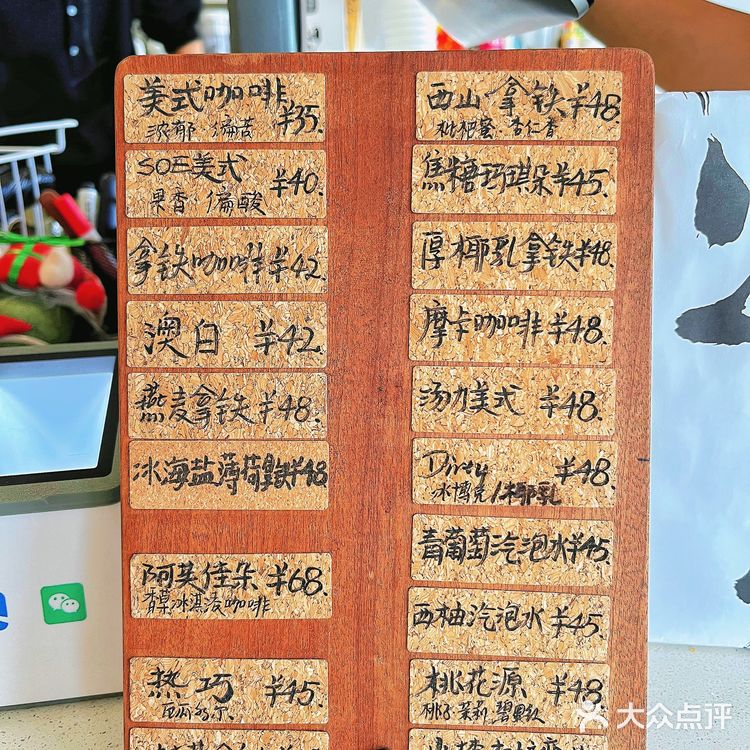 美式咖啡 ¥35.
浓郁 偏苦
SOE美式 ¥40.
果香 偏酸
拿铁咖啡 ¥42
澳白 ¥42
燕麦拿铁 ¥48.
冰海盐薄荷拿铁 ¥48
阿芙佳朵 ¥68.
香草冰淇淋咖啡
热巧 ¥45
西山拿铁 ¥48
枇杷蜜 杏仁香
焦糖玛琪朵 ¥45.
厚椰乳拿铁 ¥48.
摩卡咖啡 ¥48.
汤力美式 ¥48.
Dirty ¥48.
冰博克/椰乳
青葡萄汽泡水 ¥45.
西柚汽泡水 ¥45.
桃花源 ¥48
桃子 茉莉 碧螺
e
大众点评